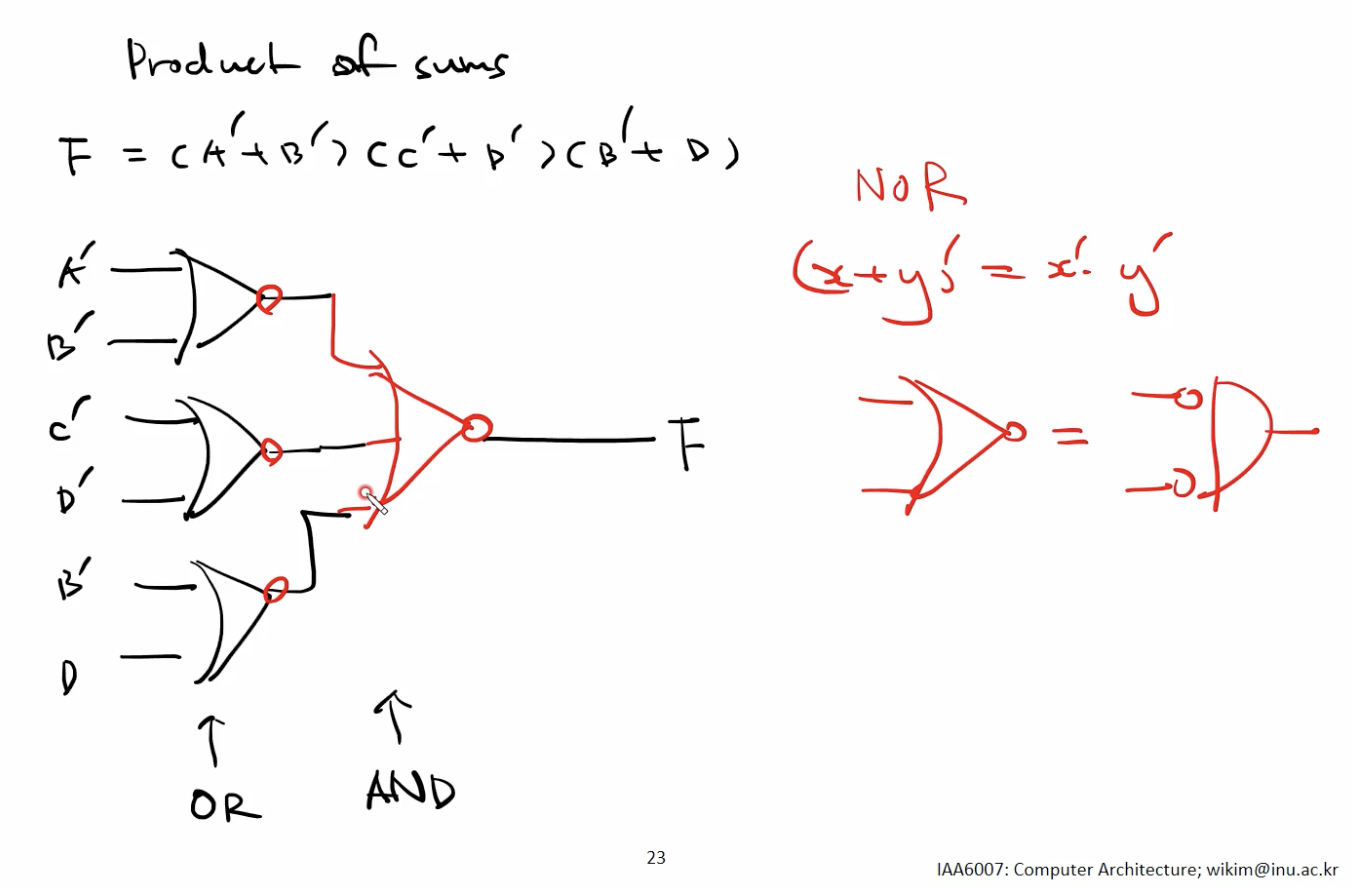 Product of sums
F = (A' + B')(C' + D')(B' + D)
NOR
(x+y)' = x'· y'
A'
B'
C'
D'
B'
D
F
=
OR
AND
23
IAA6007: Computer Architecture; wikim@inu.ac.kr